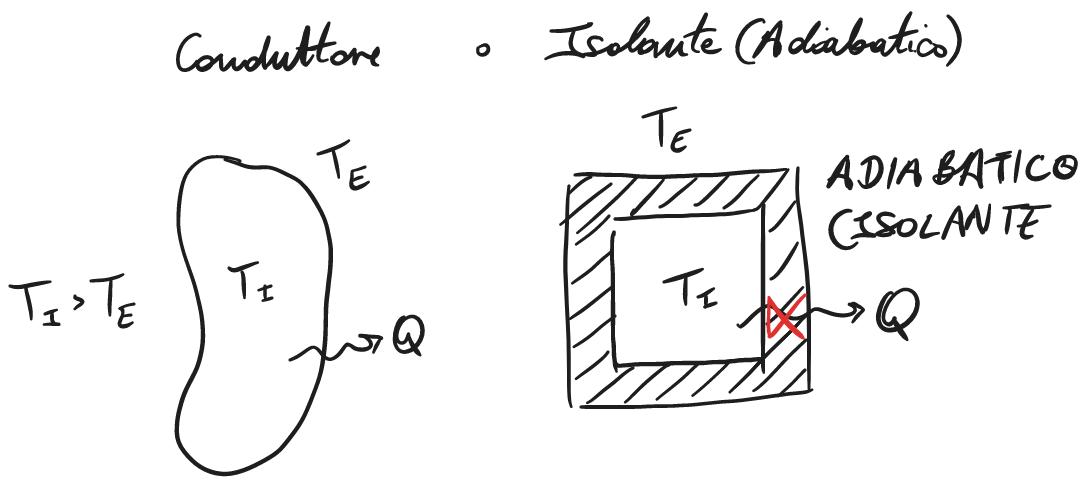 Conduttore o Isolante (Adiabatico)
T_E
T_I > T_E
T_I
Q
T_E
ADIABATICO
(ISOLANTE
T_I
Q